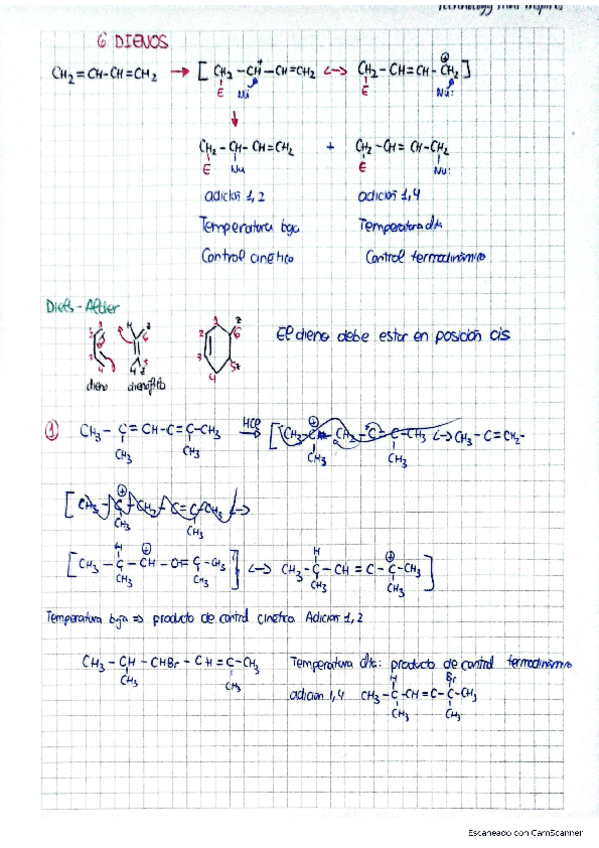 6 DIENOS
CH2=CH-CH=CH2 → [ CH2-CH+-CH=CH2 <-> CH2-CH=CH-CH2 ⊕ ]
E Nu E Nu:
CH2-CH-CH=CH2 + CH2-CH=CH-CH2
E Nu E Nu:
adición 1,2 adición 1,4
Temperatura baja Temperatura alta
Control cinético Control termodinámico
Diels-Alder
El dieno debe estar en posición cis
dieno dienófilo
① CH3-C=CH-C=C-CH3 HCl → [CH3-C-CH2-C-C-CH3 <-> CH3-C=CH2-
CH3 CH3 CH3 CH3
[CH3-C-CH2-C=C-CH3 <->
CH3 CH3
H ⊕ H ⊕
[CH3-C-CH-CH=C-CH3] <-> CH3-C-CH=C-C-CH3]
CH3 CH3 CH3 CH3
Temperatura baja => producto de control cinético Adición 1,2
CH3-CH-CHBr-CH=C-CH3 Temperatura alta: producto de control termodinámico
CH3 CH3 H Br
adición 1,4 CH3-C-CH=C-C-CH3
CH3 CH3
Escaneado con CamScanner